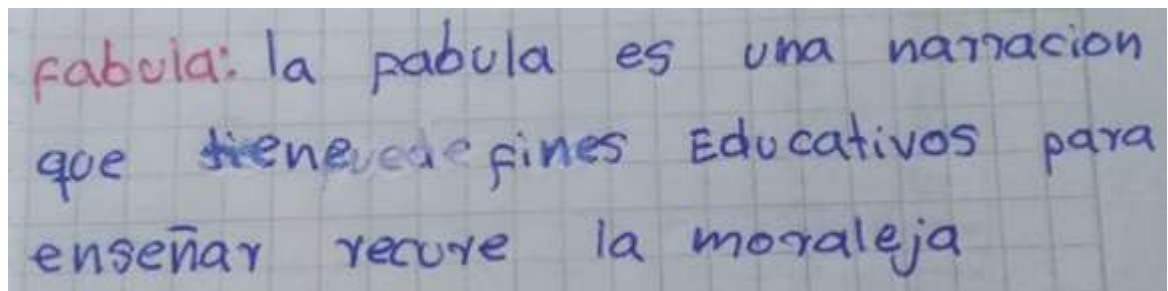 fabula: la fabula es una narracion
que tiene fines Educativos para
enseñar recure la moraleja